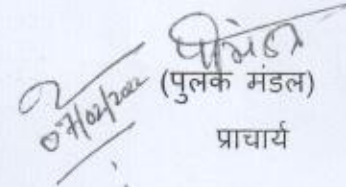 07/02/2022
(पुलक मंडल)
प्राचार्य